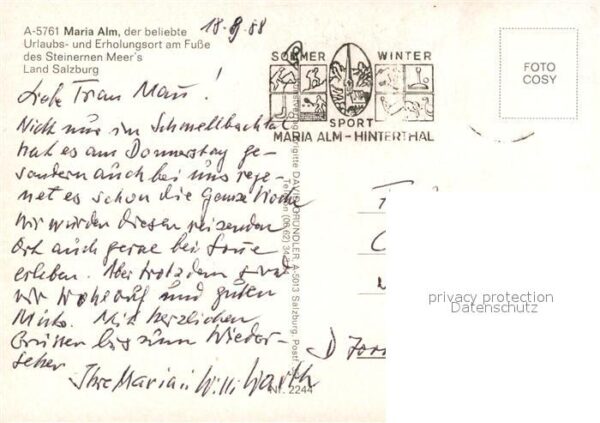 A-5761 Maria Alm, der beliebte
Urlaubs- und Erholungsort am Fuße
des Steinernen Meer's
Land Salzburg
18.9.88
SOMMER WINTER
SPORT
MARIA ALM - HINTERTHAL
FOTO
COSY
Liebe Frau Maus!
Nicht nur im
hat es am Donnerstag ge-
sondern auch bei uns reg-
net es schon die Ganze Woche
Wir würden diesen reizenden
Ort auch gerne bei Sonne
erleben. Aber trotzdem sind
wir wohlauf und guten
Muts. Mit herzlichen
Grüssen bis zum Wieder-
sehen
Ihre Maria u. Willi
Brigitte DAVID-GRÜNDLER, A-5013 Salzburg, Postf.
Telefon (06 62)
Nr. 2244
D
privacy protection
Datenschutz